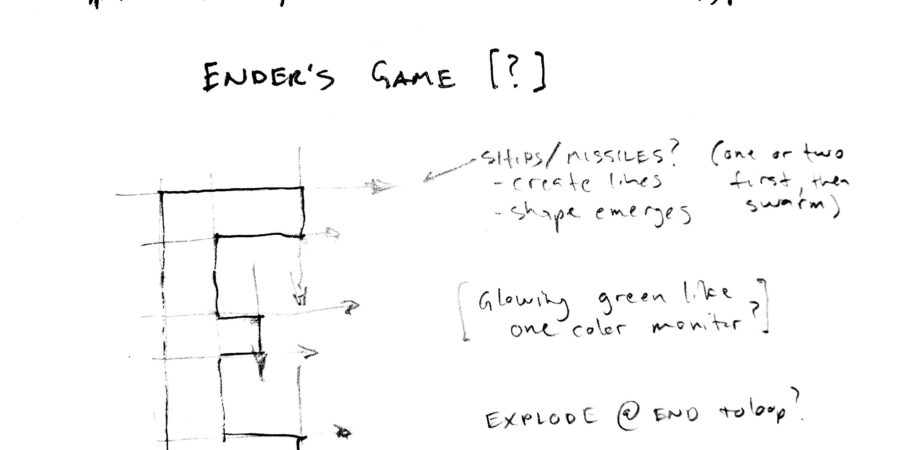 ENDER'S GAME [?]
SHIPS/MISSILES? (one or two
- create lines first, then
- shape emerges swarm)
[Glowing green like
one color monitor?]
EXPLODE @ END to loop?